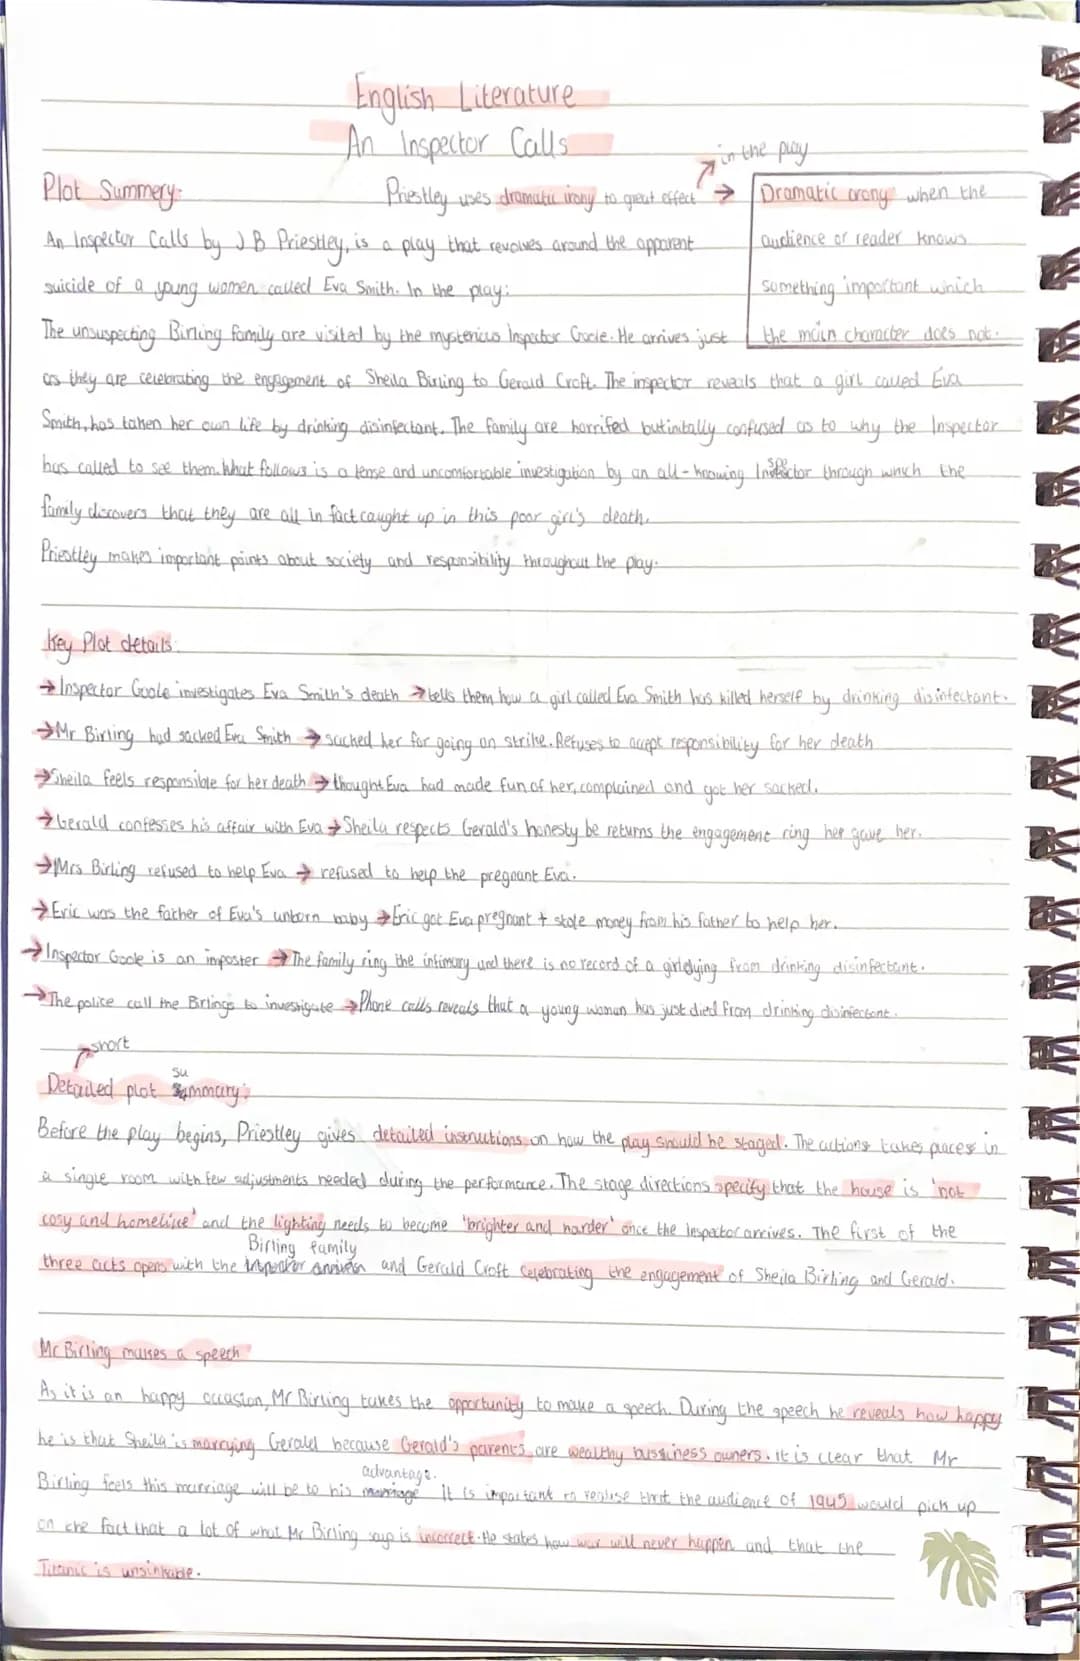 English Literature
An Inspector Calls
in the play
Plot Summery:
Priestley uses dramatic irony to great effect →
Dramatic crony when the
audience or reader knows
something important which
the main character does not.
An Inspector Calls by J B Priestley, is a play that revolves around the apparent
suicide of a young women called Eva Smith. In the play:
The unsuspecting Birling family are visited by the mysterious Inspector Goole. He arrives just
as they are celebrating the engagement of Sheila Birling to Gerald Croft. The inspector reveals that a girl called Eva
Smith, has taken her own life by drinking disinfectant. The family are horrifed but initally confused as to why the Inspector
has called to see them. What follows is a tense and uncomfortable investigation by an all-knowing Inspector through which the
family discovers that they are all in fact caught up in this poor girl's death.
Priestley makes important points about society and responsibility throughout the play.
Key Plot details:
→ Inspector Goole investigates Eva Smith's death → tells them how a girl called Eva Smith has killed herself by drinking disinfectant.
→ Mr Birling had sacked Eva Smith → sacked her for going on strike. Refuses to accept responsibility for her death
→ Sheila feels responsible for her death → thought Eva had made fun of her, complained and got her sacked.
→ Gerald confesses his affair with Eva → Sheila respects Gerald's honesty be returns the engagement ring her gave her.
→ Mrs Birling refused to help Eva → refused to help the pregnant Eva.
→ Eric was the father of Eva's unborn baby → Eric got Eva pregnant + stole money from his father to help her.
→ Inspector Goole is an imposter → The family ring the infimary and there is no record of a girl dying from drinking disinfectant.
→ The police call the Birlings to investigate → Phone calls reveals that a young woman has just died from drinking disinfectant.
short
Detailed plot summary:
Before the play begins, Priestley gives detailed instructions on how the play should be staged. The actions takes places in
a single room with few adjustments needed during the performance. The stage directions specify that the house is 'not
cosy and homelike' and the lighting needs to become 'brighter and harder' once the Inspector arrives. The first of the
three acts opens with the Birling family and Gerald Croft celebrating the engagement of Sheila Birling and Gerald.
Mr Birling makes a speech
As it is an happy occasion, Mr Birling takes the opportunity to make a speech. During the speech he reveals how happy
he is that Sheila is marrying Gerald because Gerald's parents are wealthy bussiness owners. It is clear that Mr
Birling feels this marriage will be to his advantage. It is important to realise that the audience of 1945 would pick up
on the fact that a lot of what Mr Birling says is incorrect. He states how war will never happen and that the
Titanic is unsinkable.